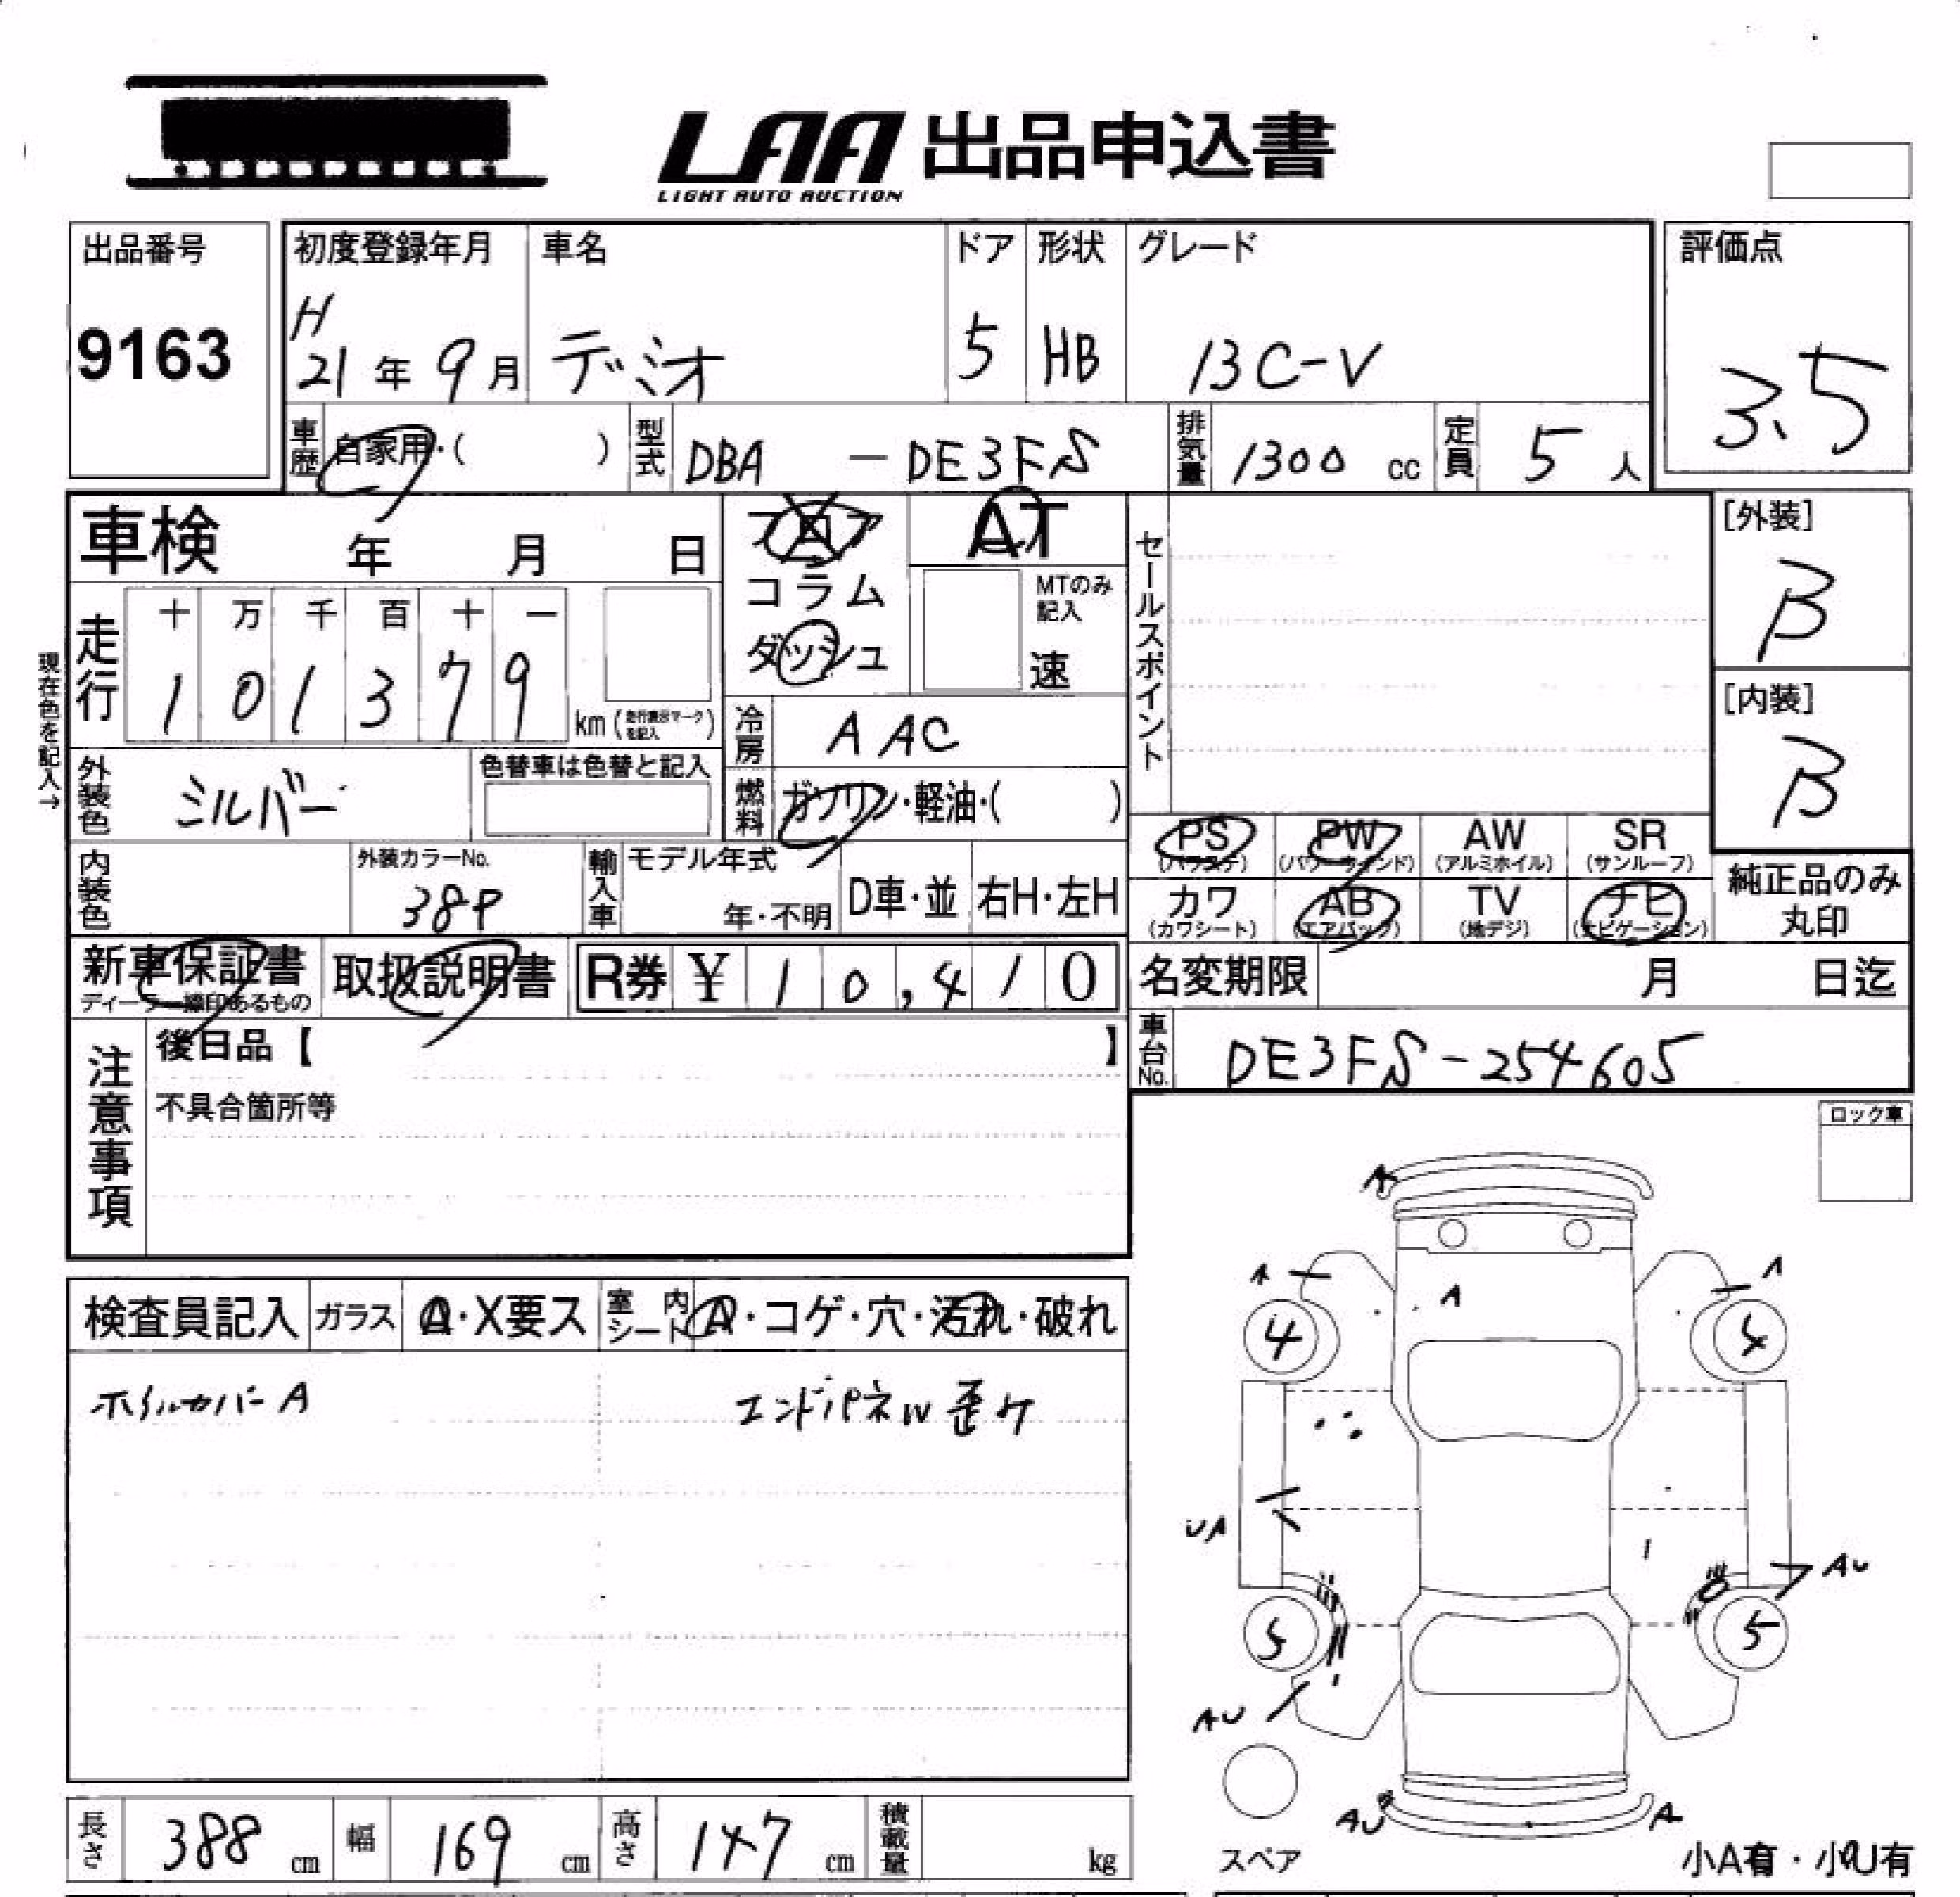 LAA 出品申込書
LIGHT AUTO AUCTION
出品番号 初度登録年月 車名 ドア 形状 グレード 評価点
9163 H 21年 9月 デミオ 5 HB 13C-V 3.5
車歴 自家用・( ) 型式 DBA - DE3FS 排気量 1300 cc 定員 5 人
車検 年 月 日 フロア AT セールスポイント [外装]
コラム MTのみ記入 B
ダッシュ 速
現在色を記入→
走行 十 万 千 百 十 一
1 0 1 3 7 9 km (走行表示マークを記入)
冷房 AAC [内装]
B
外装色 シルバー 色替車は色替と記入 燃料 ガソリン・軽油・( )
PS (パワステ) PW (パワーウィンド) AW (アルミホイル) SR (サンルーフ)
内装色 外装カラーNo. 38P 輸入車 モデル年式 年・不明 D車・並 右H・左H
カワ (カワシート) AB (エアバック) TV (地デジ) ナビ (ナビゲーション) 純正品のみ丸印
新車保証書 ディーラー捺印あるもの 取扱説明書 R券 ¥ 10,410 名変期限 月 日迄
注意事項 後日品【 】 車台No. DE3FS-254605
不具合箇所等
ロック車
検査員記入 ガラス A・X要ス 室内シート A・コゲ・穴・汚れ・破れ
ホイルカバーA エンドパネル歪ケ
A
A A A
4 4
UA AU
5 5
AU
AU A
スペア 小A有・小U有
長さ 388 cm 幅 169 cm 高さ 147 cm 積載量 kg